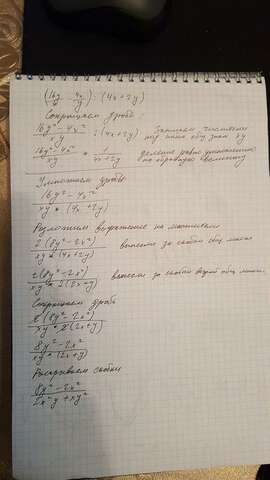 (16y/x - 4x/y) : (4x+2y)
Сокращаем дробь:
(16y² - 4x²)/xy : (4x+2y) Запишем числители над общ знам xy
(16y² - 4x²)/xy * 1/(4x+2y) деление равно умножению на
Умножаем дроби
(16y² - 4x²)/(xy * (4x+2y))
Разложим выражение на множители
2(8y² - 2x²)/(xy * (4x+2y)) вынесем за скобки общ множ
2(8y² - 2x²)/(xy * 2(2x+y)) вынесем за скобки общ множ.
Сокращаем дробь
2(8y² - 2x²)/(xy * 2(2x+y))
(8y² - 2x²)/(xy * (2x+y))
Раскрываем скобки
(8y² - 2x²)/(2x²y + xy²)